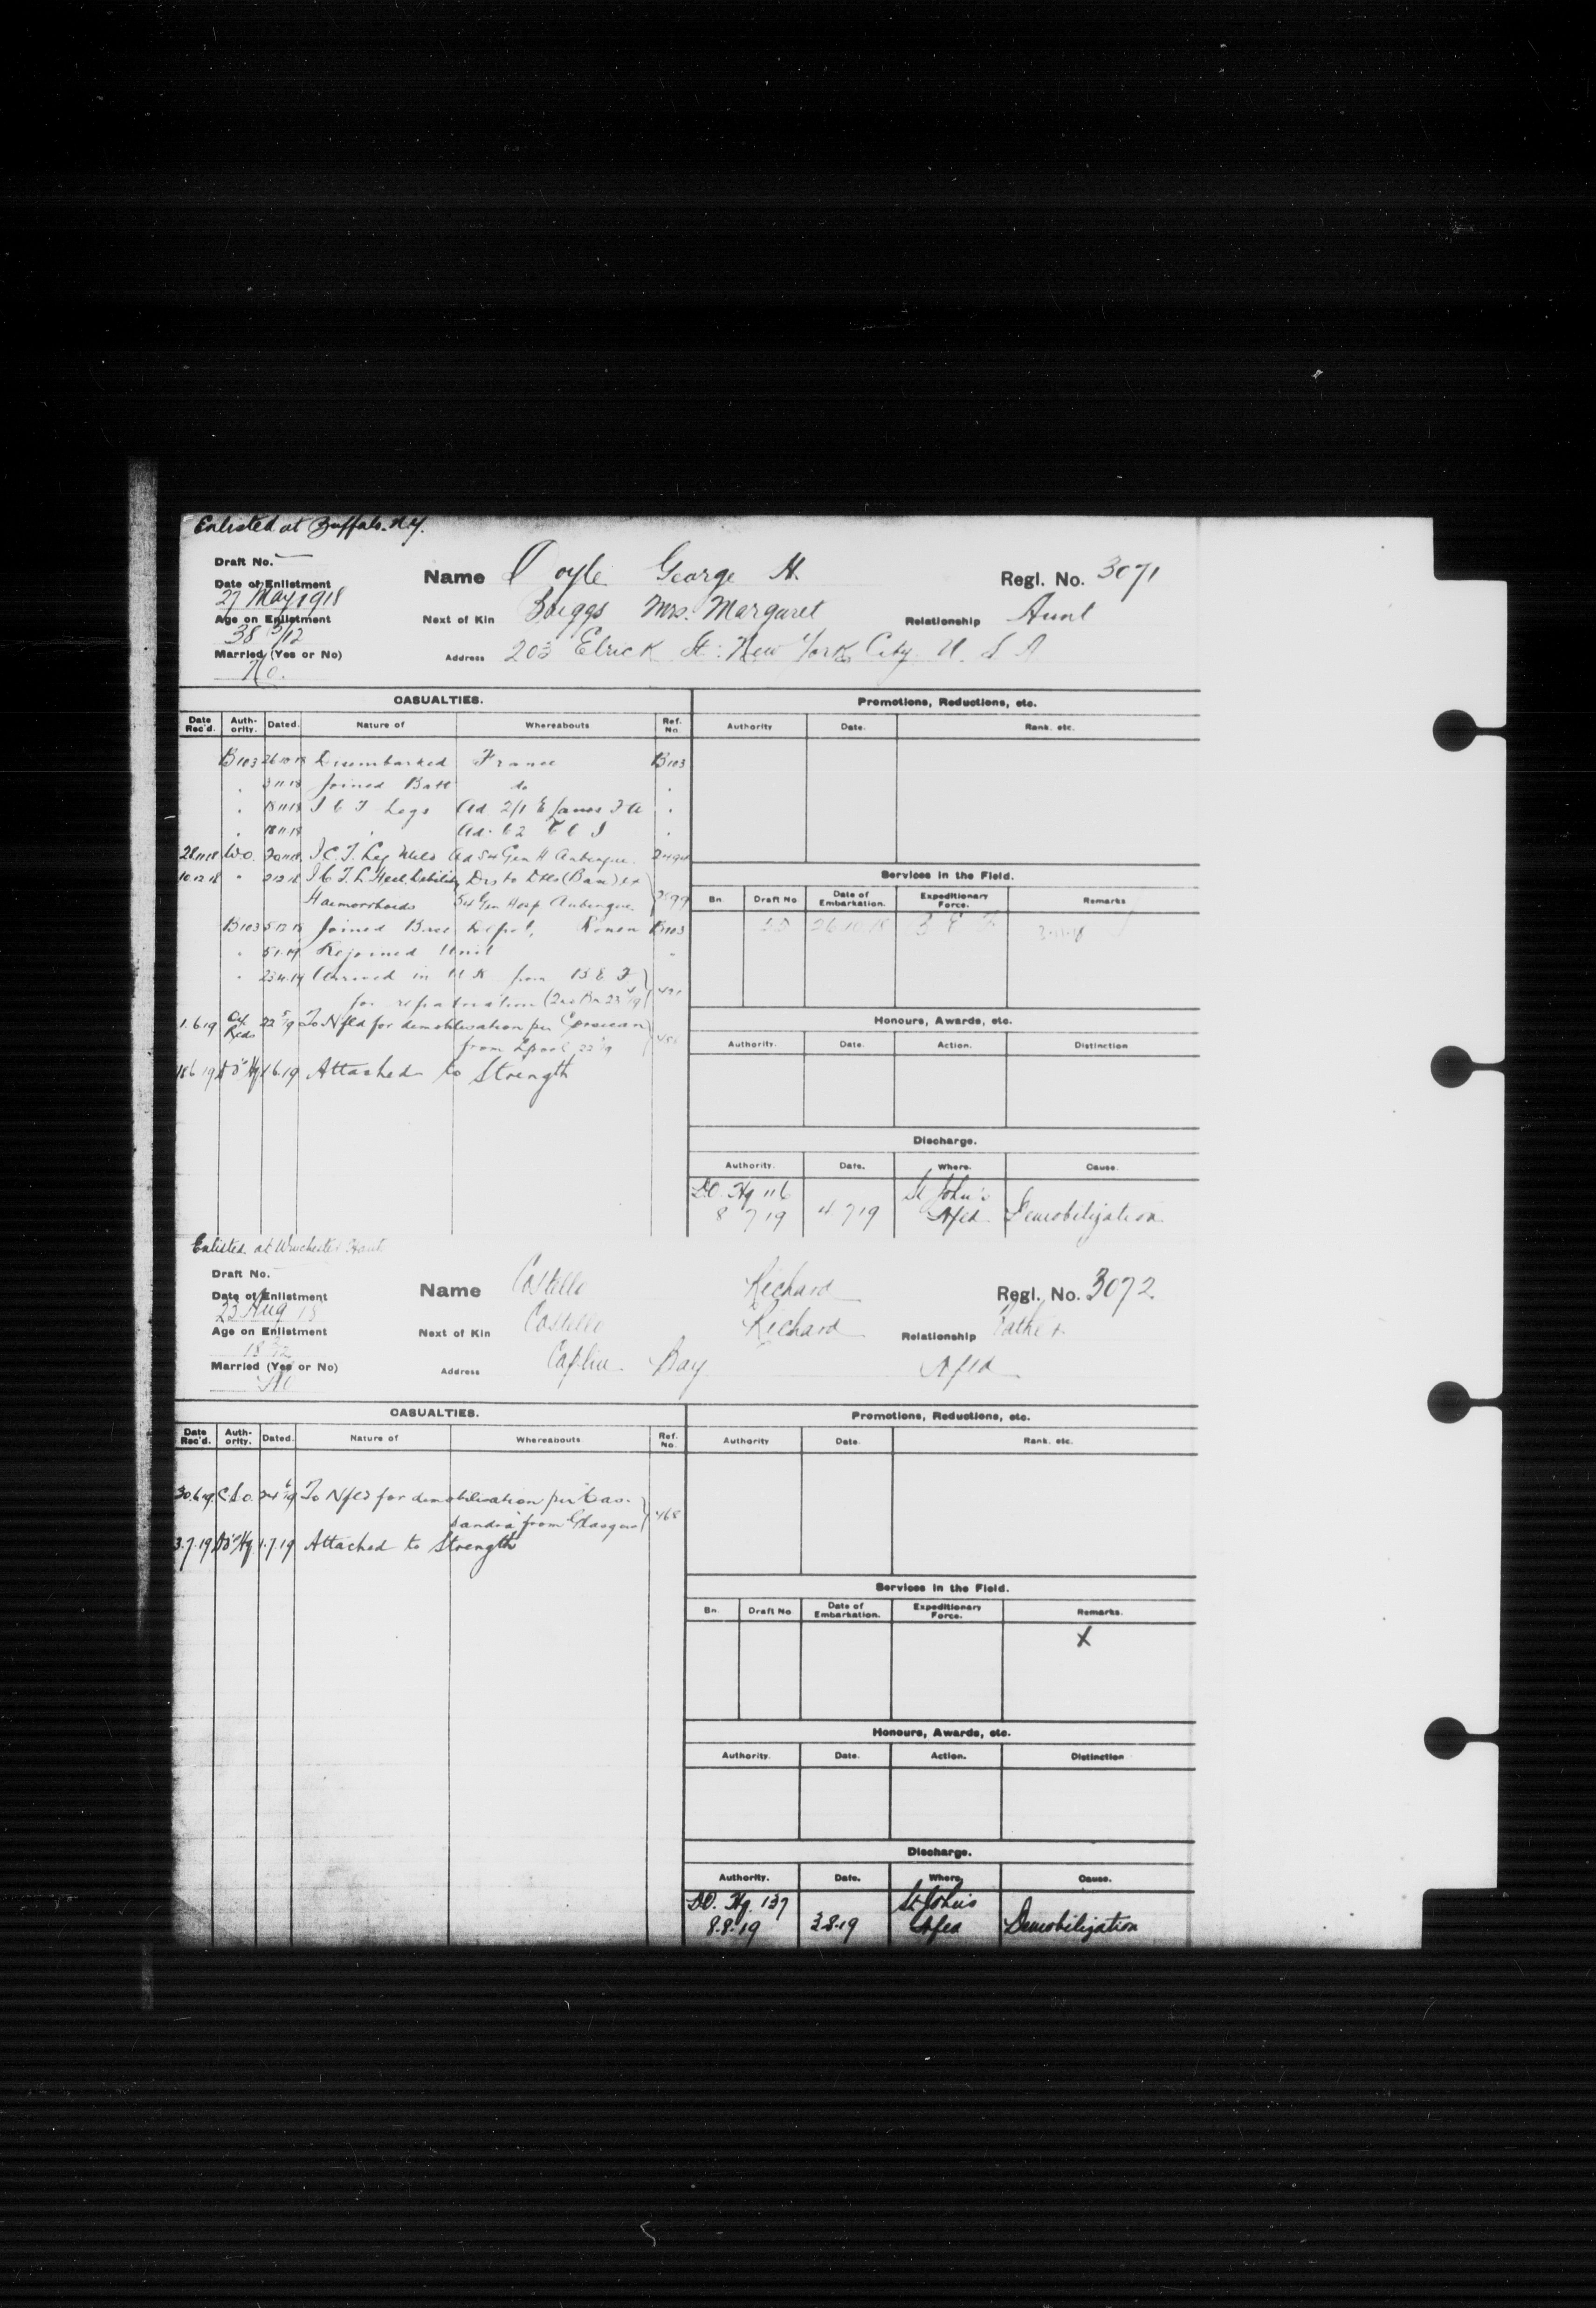 Enlisted at Buffalo. N.Y.
Draft No. —
Date of Enlistment
27 May 1918
Name Doyle George H. Regl. No. 3071
Age on Enlistment
38 5/12
Next of Kin Briggs Mrs. Margaret Relationship Aunt
Married (Yes or No)
No.
Address 203 Elrick St. New York City U. S. A
CASUALTIES.
Date Rec'd. Auth-ority. Dated. Nature of Whereabouts Ref. No.
B103 26.10.18 Disembarked France B103
" 3.11.18 Joined Batt do "
" 18.11.18 I C T Legs Ad. 2/1 E Lancs F A "
" 18.11.18 " Ad. 62 C C S "
28.11.18 W.O. 20.11.18 I.C.T. Leg Mild Ad 54 Gen H Aubengue
10.12.18 " 2.12.18 I.C.T. L Heel, Debility Dis to Dtls (Base) ex
Haemorrhoids 54 Gen Hosp Aubengue
B103 5.12.18 Joined Base Depot, Rouen B103
" 5.1.19 Rejoined Unit "
" 23.4.19 Arrived in U K from B E F
for repatriation (2nd Bn 23 4/19)
1.6.19 Off Recds 22 5/19 To Nfld for demobilisation per Corsican
from Lpool 22 5/19
18.6.19 D.O. Hq 1.6.19 Attached to Strength
Promotions, Reductions, etc.
Authority Date. Rank. etc.
Services in the Field.
Bn. Draft No Date of Embarkation. Expeditionary Force. Remarks
26.10.18 B E F
Honours, Awards, etc.
Authority. Date. Action. Distinction
Discharge.
Authority. Date. Where. Cause.
D.O. Hq 116 St John's
8 7 19 4 7 19 Nfld. Demobilization
Enlisted. at Winchester Hants
Draft No.
Date of Enlistment
23 Aug 18
Name Costello Richard Regl. No. 3072
Age on Enlistment
Next of Kin Costello Richard Relationship Father
Married (Yes or No)
No
Address Caplin Bay Nfld
CASUALTIES.
Date Rec'd. Auth-ority. Dated. Nature of Whereabouts Ref. No.
30.6.19 C.S.O. 24 6/19 To Nfld for demobilisation per "Cas-
sandra" from Glasgow 468
3.7.19 D.O. Hq 1.7.19 Attached to Strength
Promotions, Reductions, etc.
Authority Date. Rank. etc.
Services in the Field.
Bn. Draft No Date of Embarkation. Expeditionary Force. Remarks.
X
Honours, Awards, etc.
Authority. Date. Action. Distinction
Discharge.
Authority. Date. Where. Cause.
D.O. Hq. 137 St John's
8.8.19 3.8.19 Nfld Demobilization